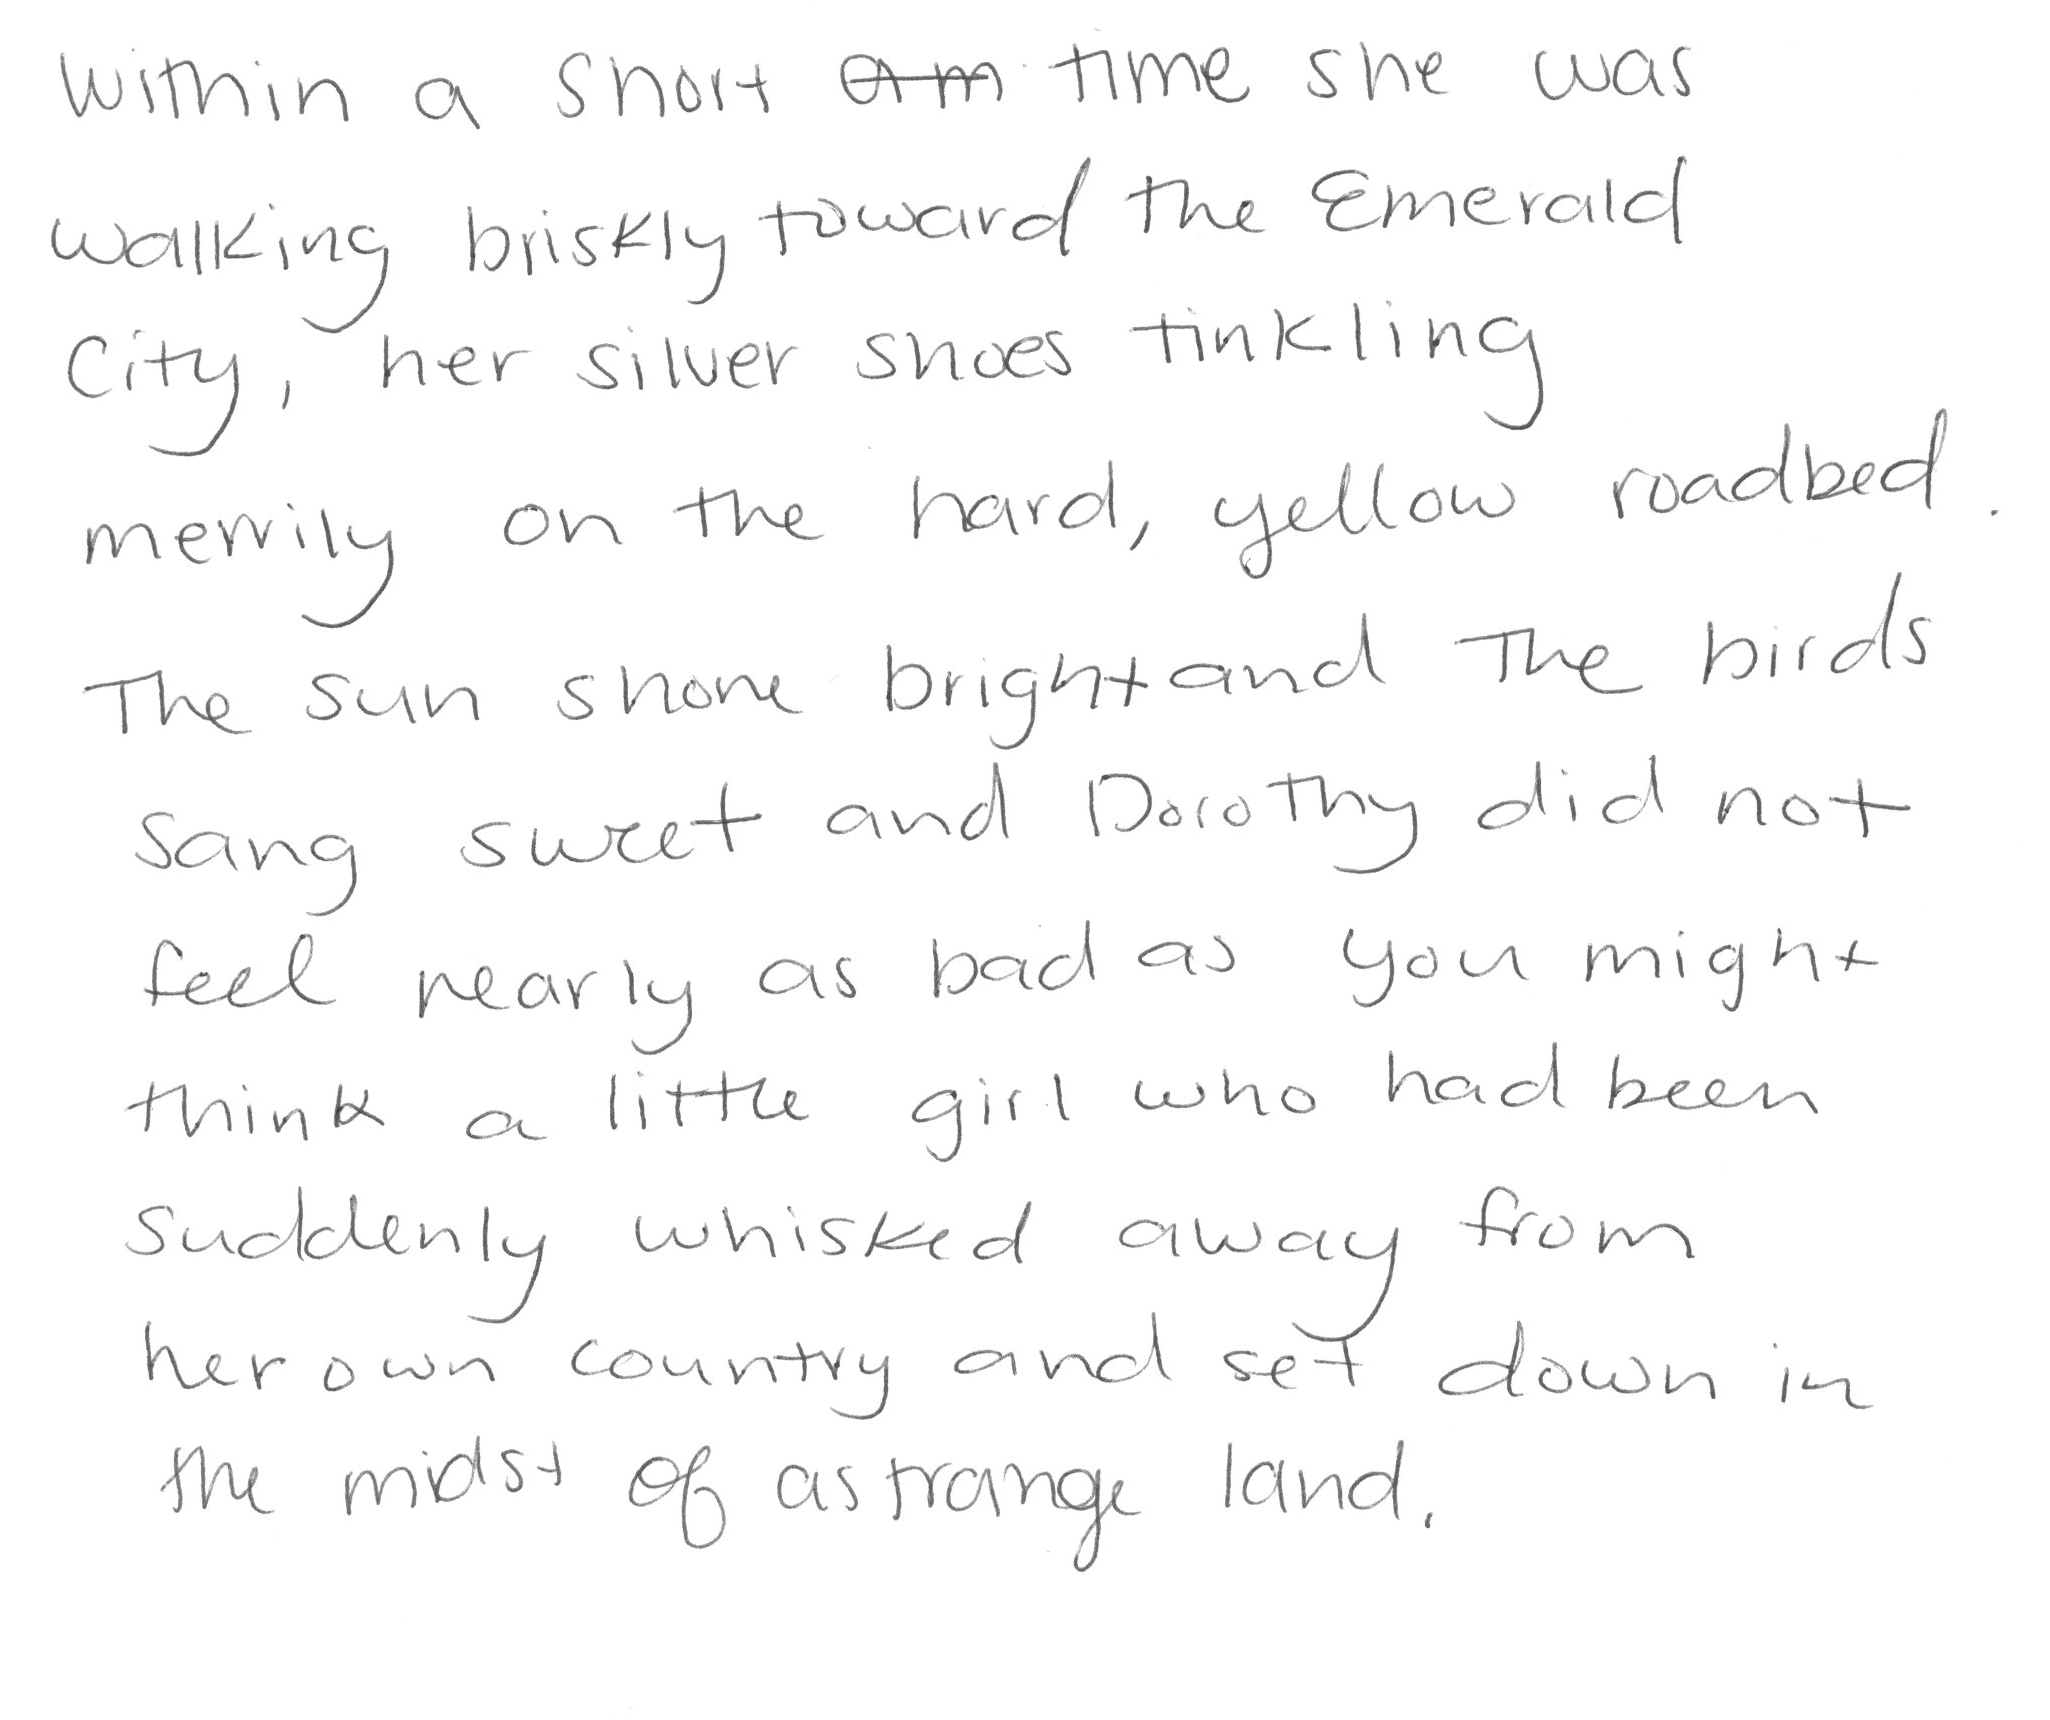 Within a short time she was
walking briskly toward the Emerald
City, her silver shoes tinkling
merrily on the hard, yellow roadbed.
The sun shone bright and the birds
sang sweet and Dorothy did not
feel nearly as bad as you might
think a little girl who had been
suddenly whisked away from
her own country and set down in
the midst of a strange land.